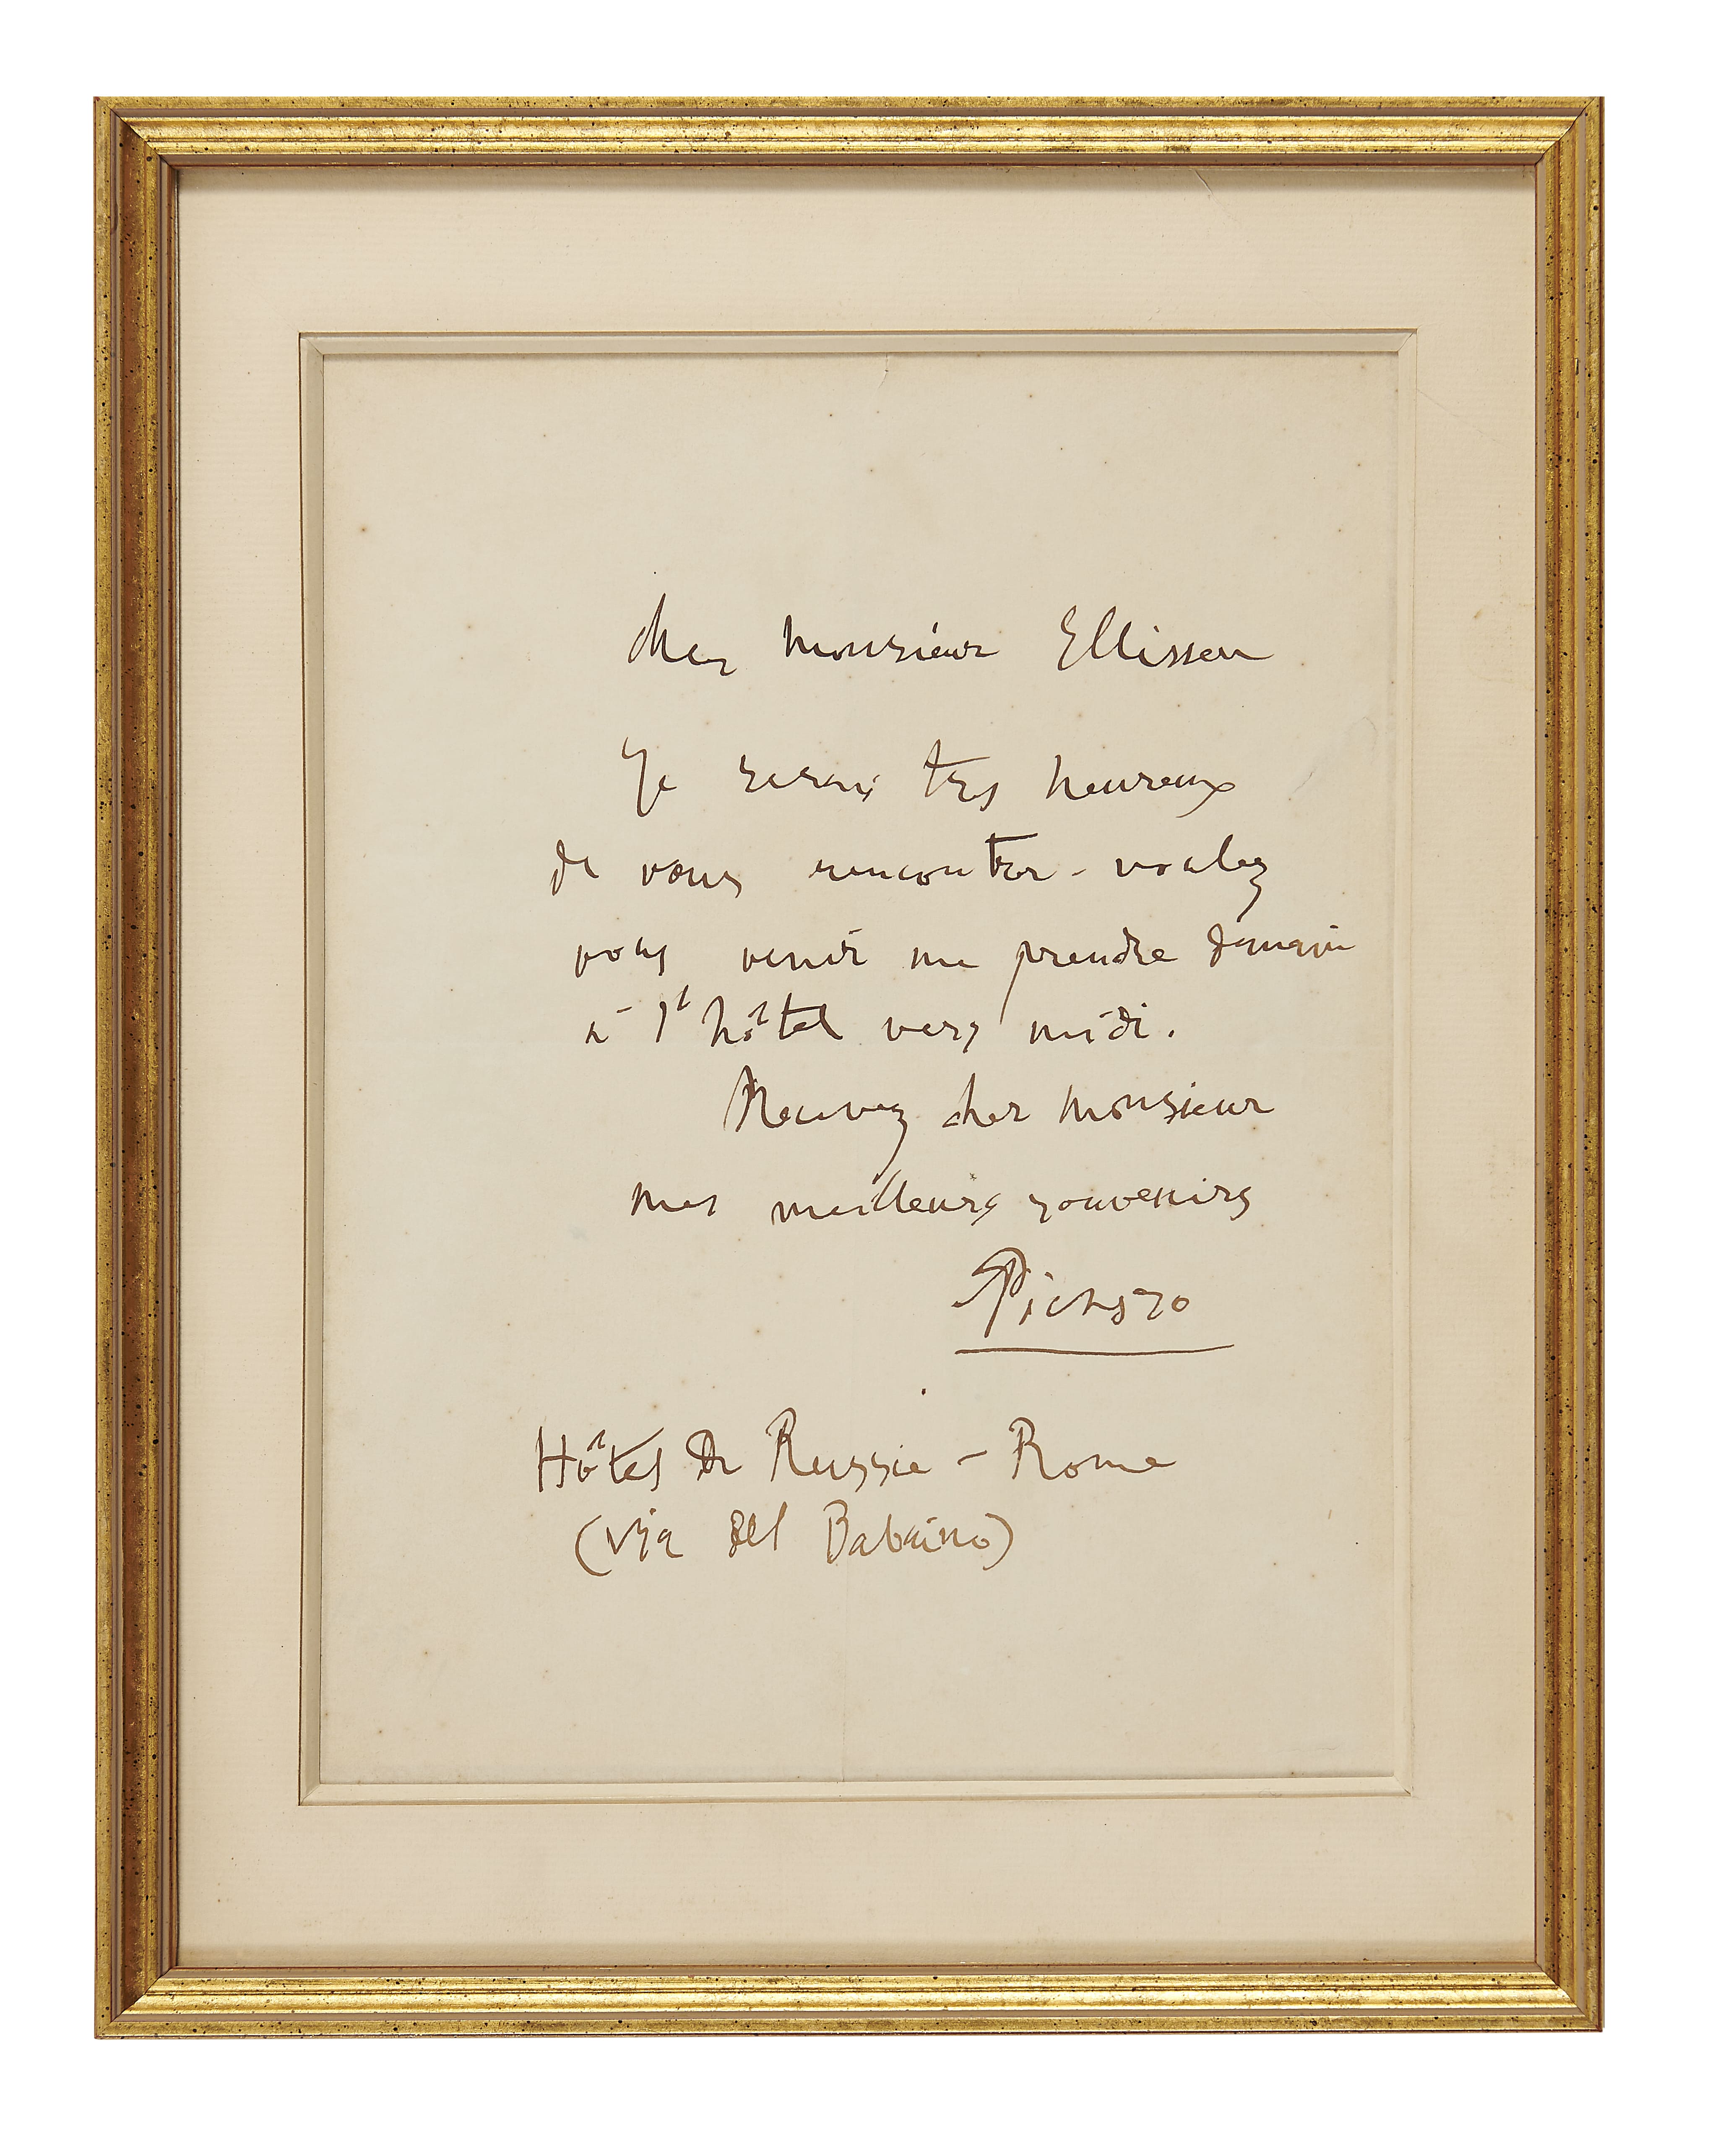 cher monsieur Ellissen
Je serais tres heureux
de vous rencontrer - voulez
vous venir me prendre demain
à l'hôtel vers midi.
Recevez cher monsieur
mes meilleurs souvenirs
Picasso
Hôtel De Russie - Rome
(Via del Babuino)